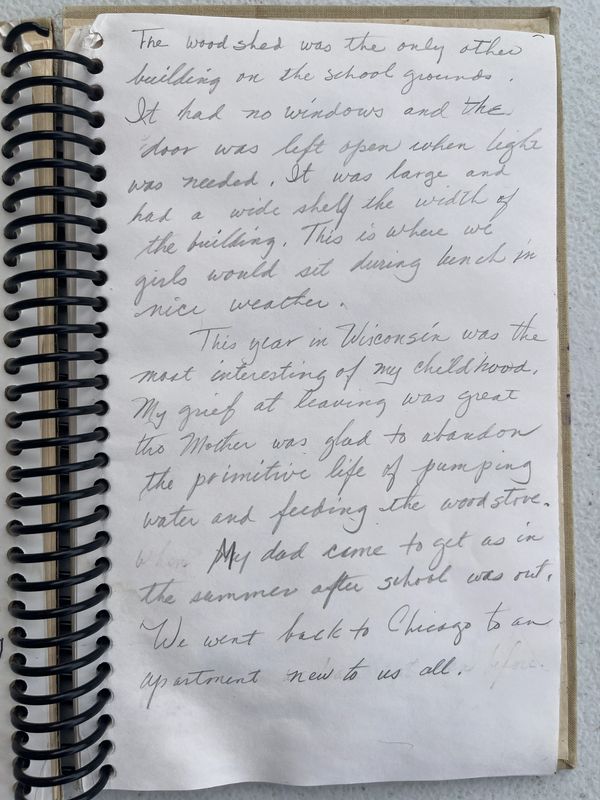 The woodshed was the only other
building on the school grounds.
It had no windows and the
door was left open when light
was needed. It was large and
had a wide shelf the width of
the building. This is where we
girls would sit during lunch in
nice weather.
This year in Wisconsin was the
most interesting of my childhood.
My grief at leaving was great
tho Mother was glad to abandon
the primitive life of pumping
water and feeding the woodstove.
when My dad came to get us in
the summer after school was out.
We went back to Chicago to an
apartment new to us all. before.